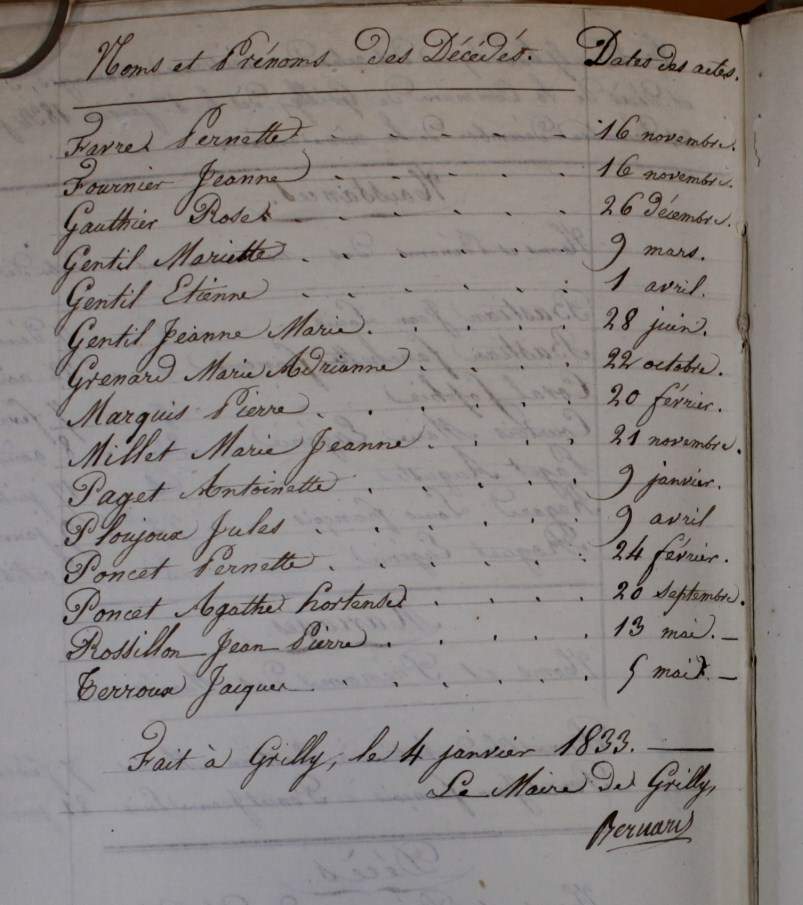 Noms et Prénoms des Décédés. Dates des actes.
Favre Pernette . . . . . . 16 novembre.
Fournier Jeanne . . . . . . 16 novembre.
Gauthier Rose . . . . . . 26 Décembre.
Gentil Mariette . . . . . . 9 mars.
Gentil Etienne . . . . . . 1 avril.
Gentil Jeanne Marie . . . . . 28 juin.
Grenard Marie Adrianne . . . . 22 octobre.
Marquis Pierre . . . . . . 20 février.
Millet Marie Jeanne . . . . 21 novembre.
Paget Antoinette . . . . . 9 janvier.
Ploujoux Jules . . . . . . 9 avril
Poncet Pernette . . . . . . 24 février.
Poncet Agathe hortense . . . . 20 septembre.
Rossillon Jean Pierre . . . . . 13 mai. —
Terroux Jacques . . . . . . 5 mai. —
Fait à Grilly, le 4 janvier 1833. —
Le Maire de Grilly,